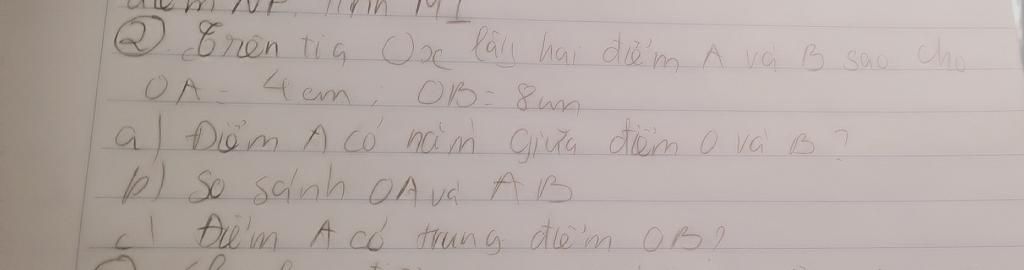 điểm NP. Tính MI
② Trên tia Ox lấy hai điểm A và B sao cho
OA = 4cm; OB = 8cm
a) Điểm A có nằm giữa điểm O và B?
b) So sánh OA và AB
c) Điểm A có trung điểm OB?